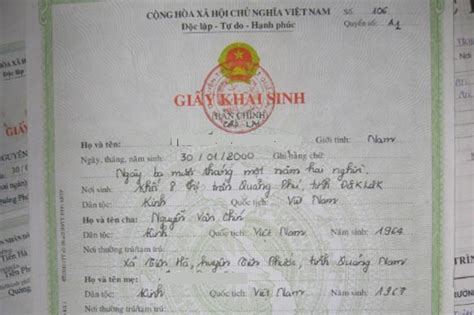 CỘNG HÒA XÃ HỘI CHỦ NGHĨA VIỆT NAM
Độc lập - Tự do - Hạnh phúc
Số 106
Quyển số: A1
GIẤY KHAI SINH
BẢN CHÍNH
Họ và tên: Giới tính: Nam
Ngày, tháng, năm sinh: 30/01/2000 Ghi bằng chữ
Ngày ba mươi tháng một năm hai nghìn.
Nơi sinh: Khối 8 thị trấn Quảng Phú, tỉnh Đăk Lăk
Dân tộc: Kinh Quốc tịch: Việt Nam
Họ và tên cha: Nguyễn Văn
Dân tộc: Kinh Quốc tịch: Việt Nam Năm sinh: 1964
Nơi thường trú/tạm trú:
Xã Tiên Hà, huyện Tiên Phước, tỉnh Quảng Nam
Họ và tên mẹ:
Dân tộc: Kinh Quốc tịch: Việt Nam Năm sinh: 1967
Nơi thường trú/tạm trú: